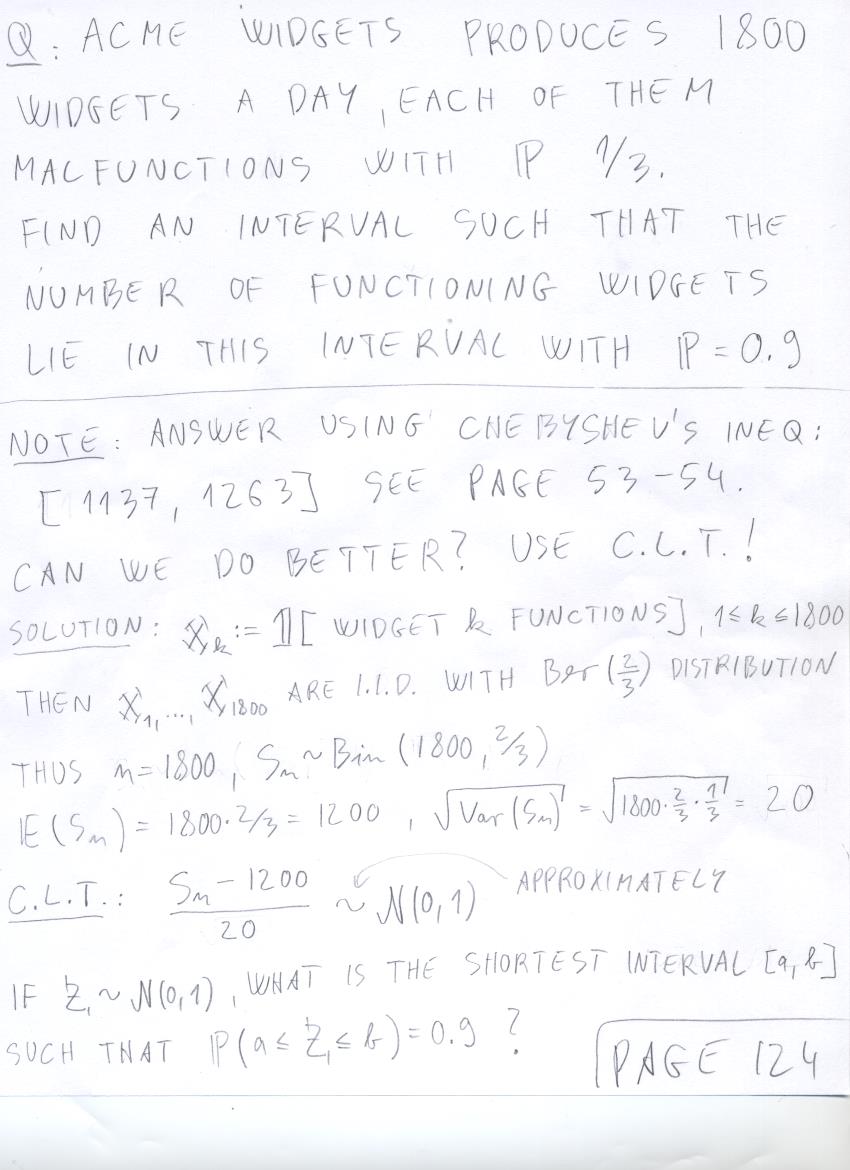 Q: ACME WIDGETS PRODUCES 1800
WIDGETS A DAY, EACH OF THEM
MALFUNCTIONS WITH ℙ 1/3.
FIND AN INTERVAL SUCH THAT THE
NUMBER OF FUNCTIONING WIDGETS
LIE IN THIS INTERVAL WITH ℙ = 0.9
NOTE: ANSWER USING CHEBYSHEV'S INEQ:
[1137, 1263] SEE PAGE 53-54.
CAN WE DO BETTER? USE C.L.T.!
SOLUTION: X_k := 𝟙[WIDGET k FUNCTIONS], 1 ≤ k ≤ 1800
THEN X_1, ..., X_1800 ARE I.I.D. WITH Ber(2/3) DISTRIBUTION
THUS n = 1800, S_n ~ Bin(1800, 2/3)
𝔼(S_n) = 1800·2/3 = 1200, √Var(S_n) = √1800·2/3·1/3 = 20
C.L.T.: (S_n - 1200)/20 ~ N(0,1) APPROXIMATELY
IF Z ~ N(0,1), WHAT IS THE SHORTEST INTERVAL [a, b]
SUCH THAT ℙ(a ≤ Z ≤ b) = 0.9 ?
PAGE 124